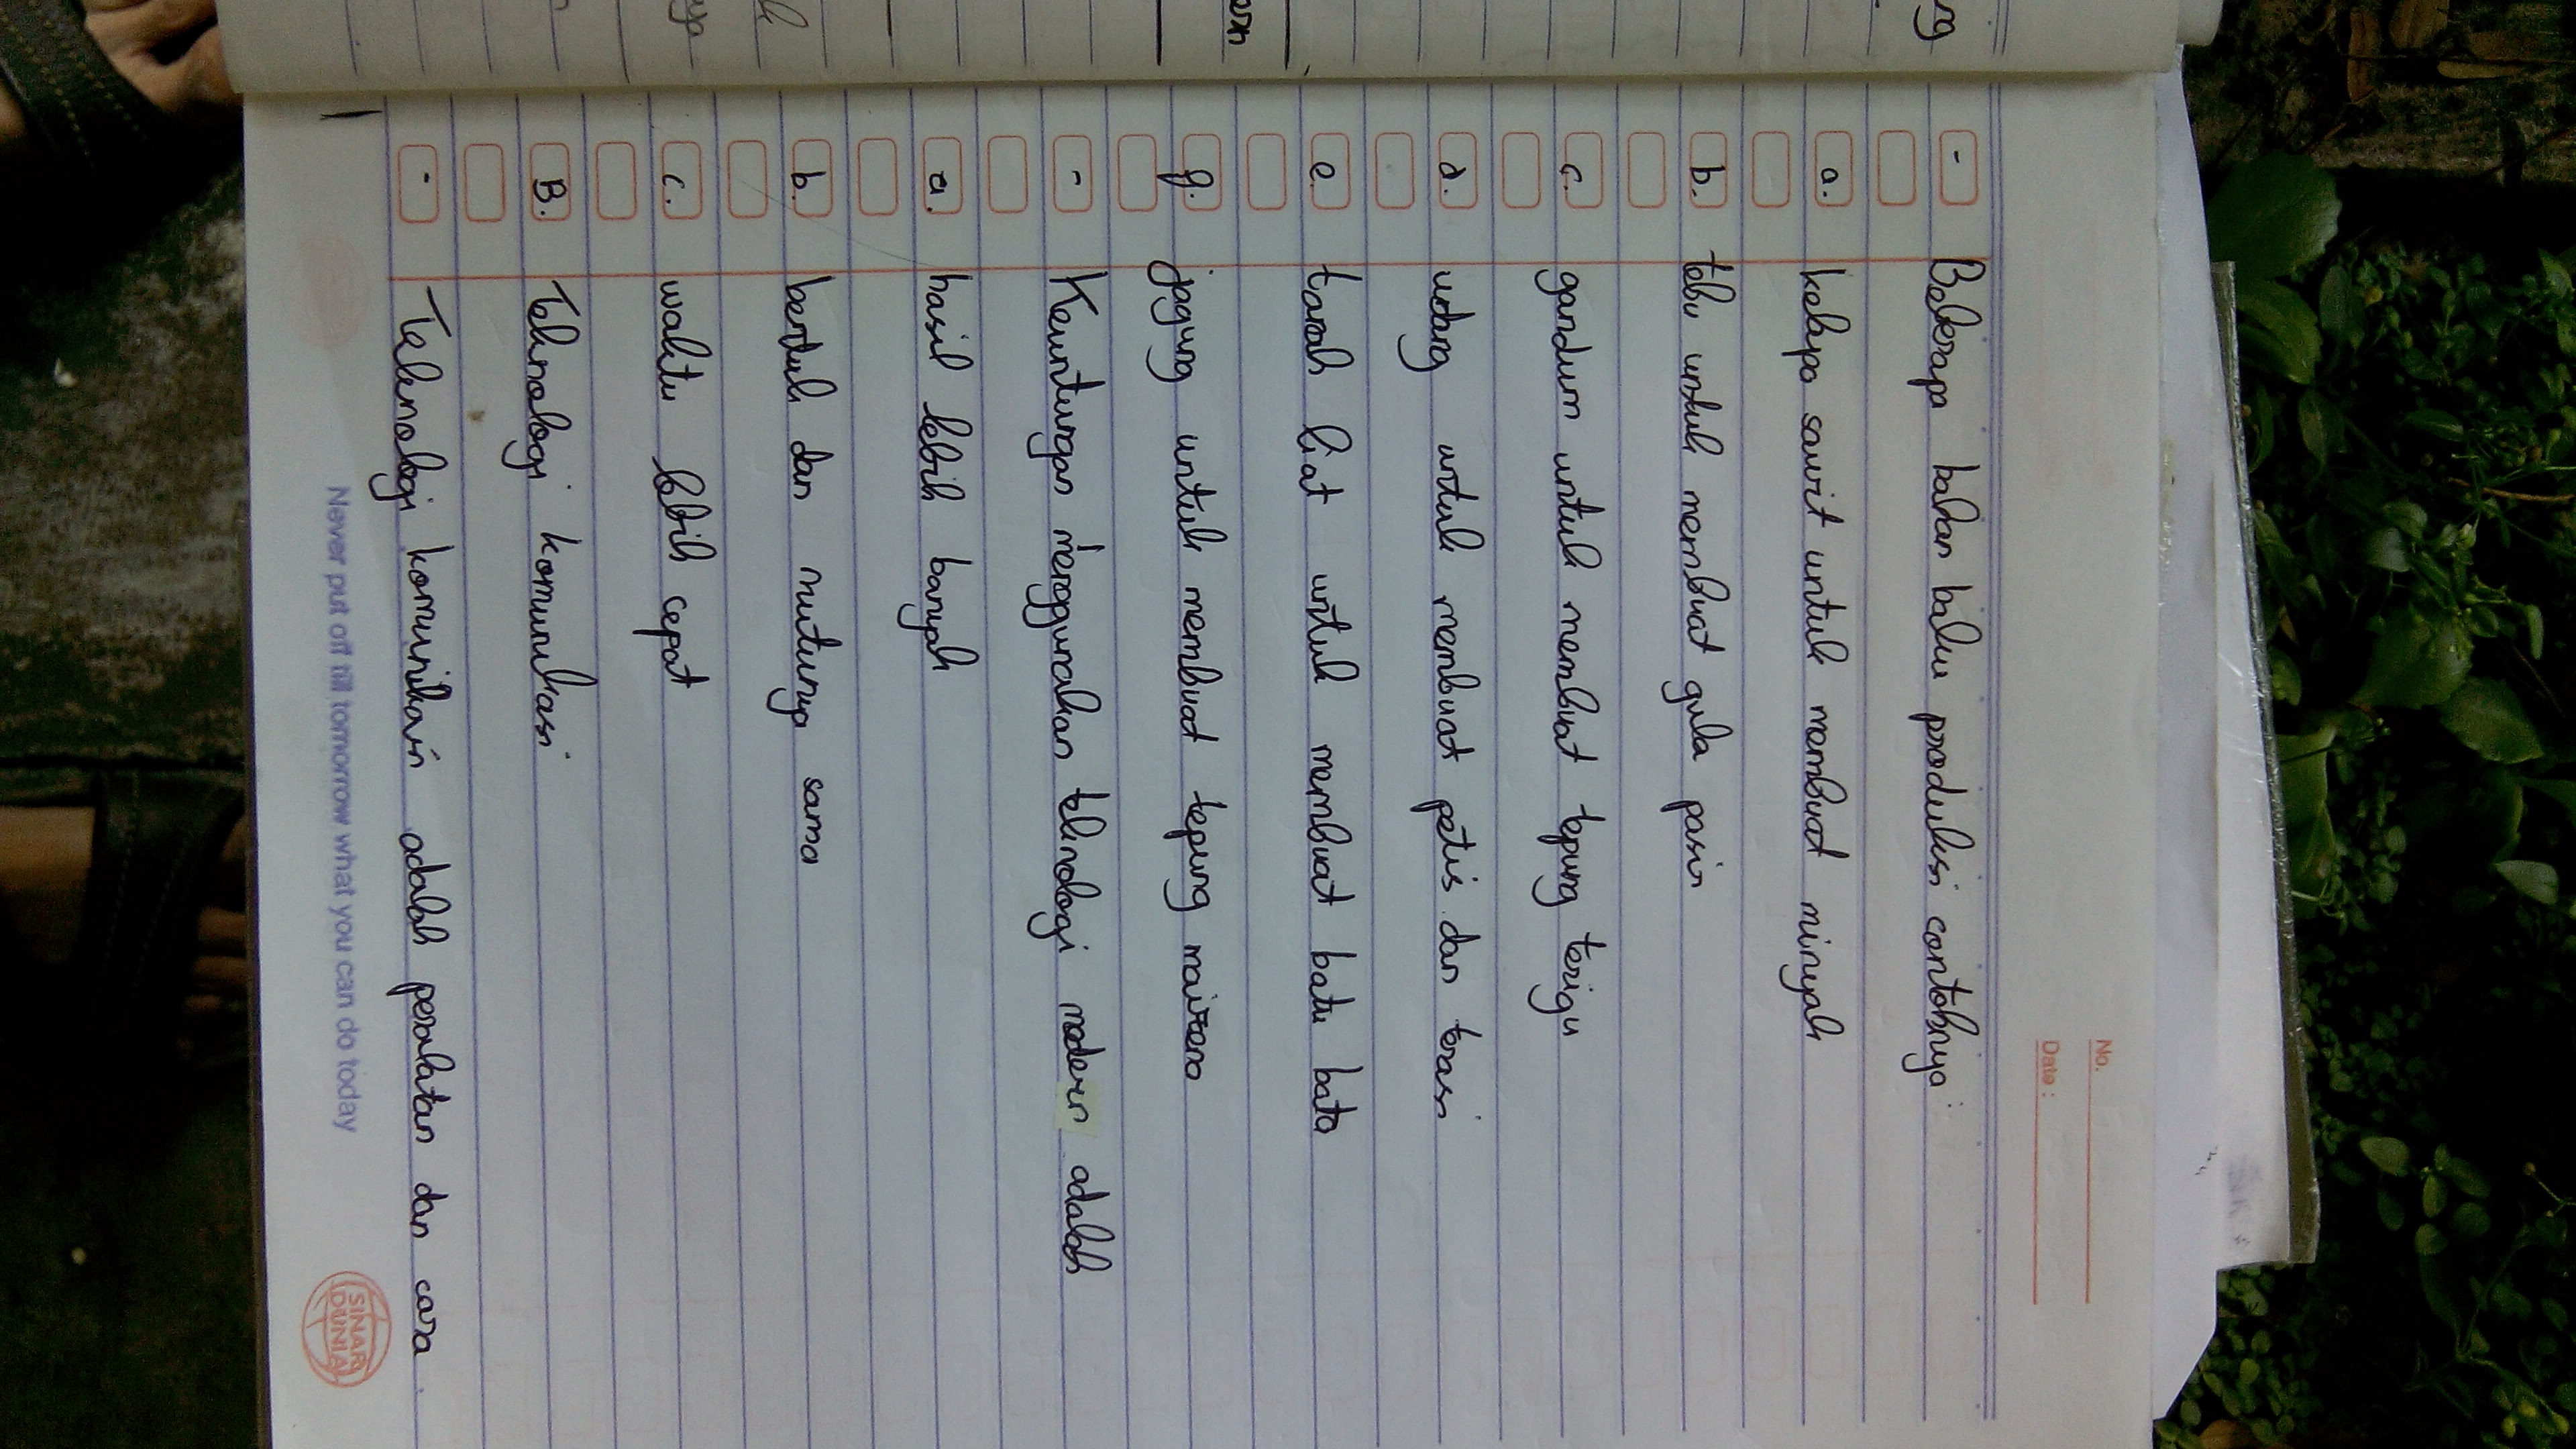 No.
Date :
- Beberapa bahan baku produksi contohnya :
a. kelapa sawit untuk membuat minyak
b. tebu untuk membuat gula pasir
c. gandum untuk membuat tepung terigu
d. udang untuk membuat petis dan terasi
e. tanah liat untuk membuat batu bata
g. jagung untuk membuat tepung maizena
- Keuntungan menggunakan teknologi modern adalah
a. hasil lebih banyak
b. bentuk dan mutunya sama
c. waktu lebih cepat
B. Teknologi komunikasi
- Teknologi komunikasi adalah peralatan dan cara
Never put off till tomorrow what you can do today
SINAR
DUNIA